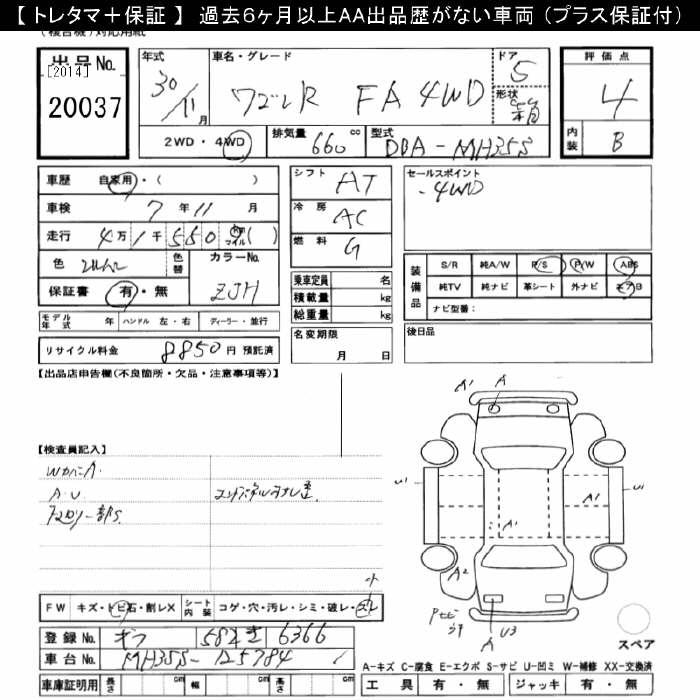 【 トレタマ＋保証 】 過去６ヶ月以上ＡＡ出品歴がない車両（プラス保証付）
出品No.
[2014]
20037
年式
30/11月
車名・グレード
ワゴンR FA 4WD
ドア
5
形状
評価点
4
内装
B
2WD・4WD
排気量
660 cc
型式
DBA-MH35S
車歴 自家用・( )
車検 7 年 11 月
走行 4万 1千 5 5 0 km マイル ( )
色
色替
カラーNo.
ZJH
保証書 有・無
シフト AT
冷房 AC
燃料 G
セールスポイント
・4WD
装備品
S/R 純A/W P/S P/W ABS
純TV 純ナビ 革シート 外ナビ エアB
ナビ型番：
乗車定員 名
積載量 kg
総重量 kg
モデル年式 年 ハンドル 左・右 ディーラー・並行
名変期限 月 日
後日品
リサイクル料金 8850 円 預託済
【出品店申告欄(不良箇所・欠品・注意事項等)】
【検査員記入】
A.U.
A' A
U1 A' U1
A'
A2
A U3
F W キズ・トビ石・割レX シート内装 コゲ・穴・汚レ・シミ・破レ・スレ
小
登録No. ギフ 582 き 6366
車台No. MH35S-125784
スペア
A-キズ C-腐食 E-エクボ S-サビ U-凹ミ W-補修 XX-交換済
車庫証明用 長さ cm 幅 cm 高さ cm
工具 有・無 ジャッキ 有・無